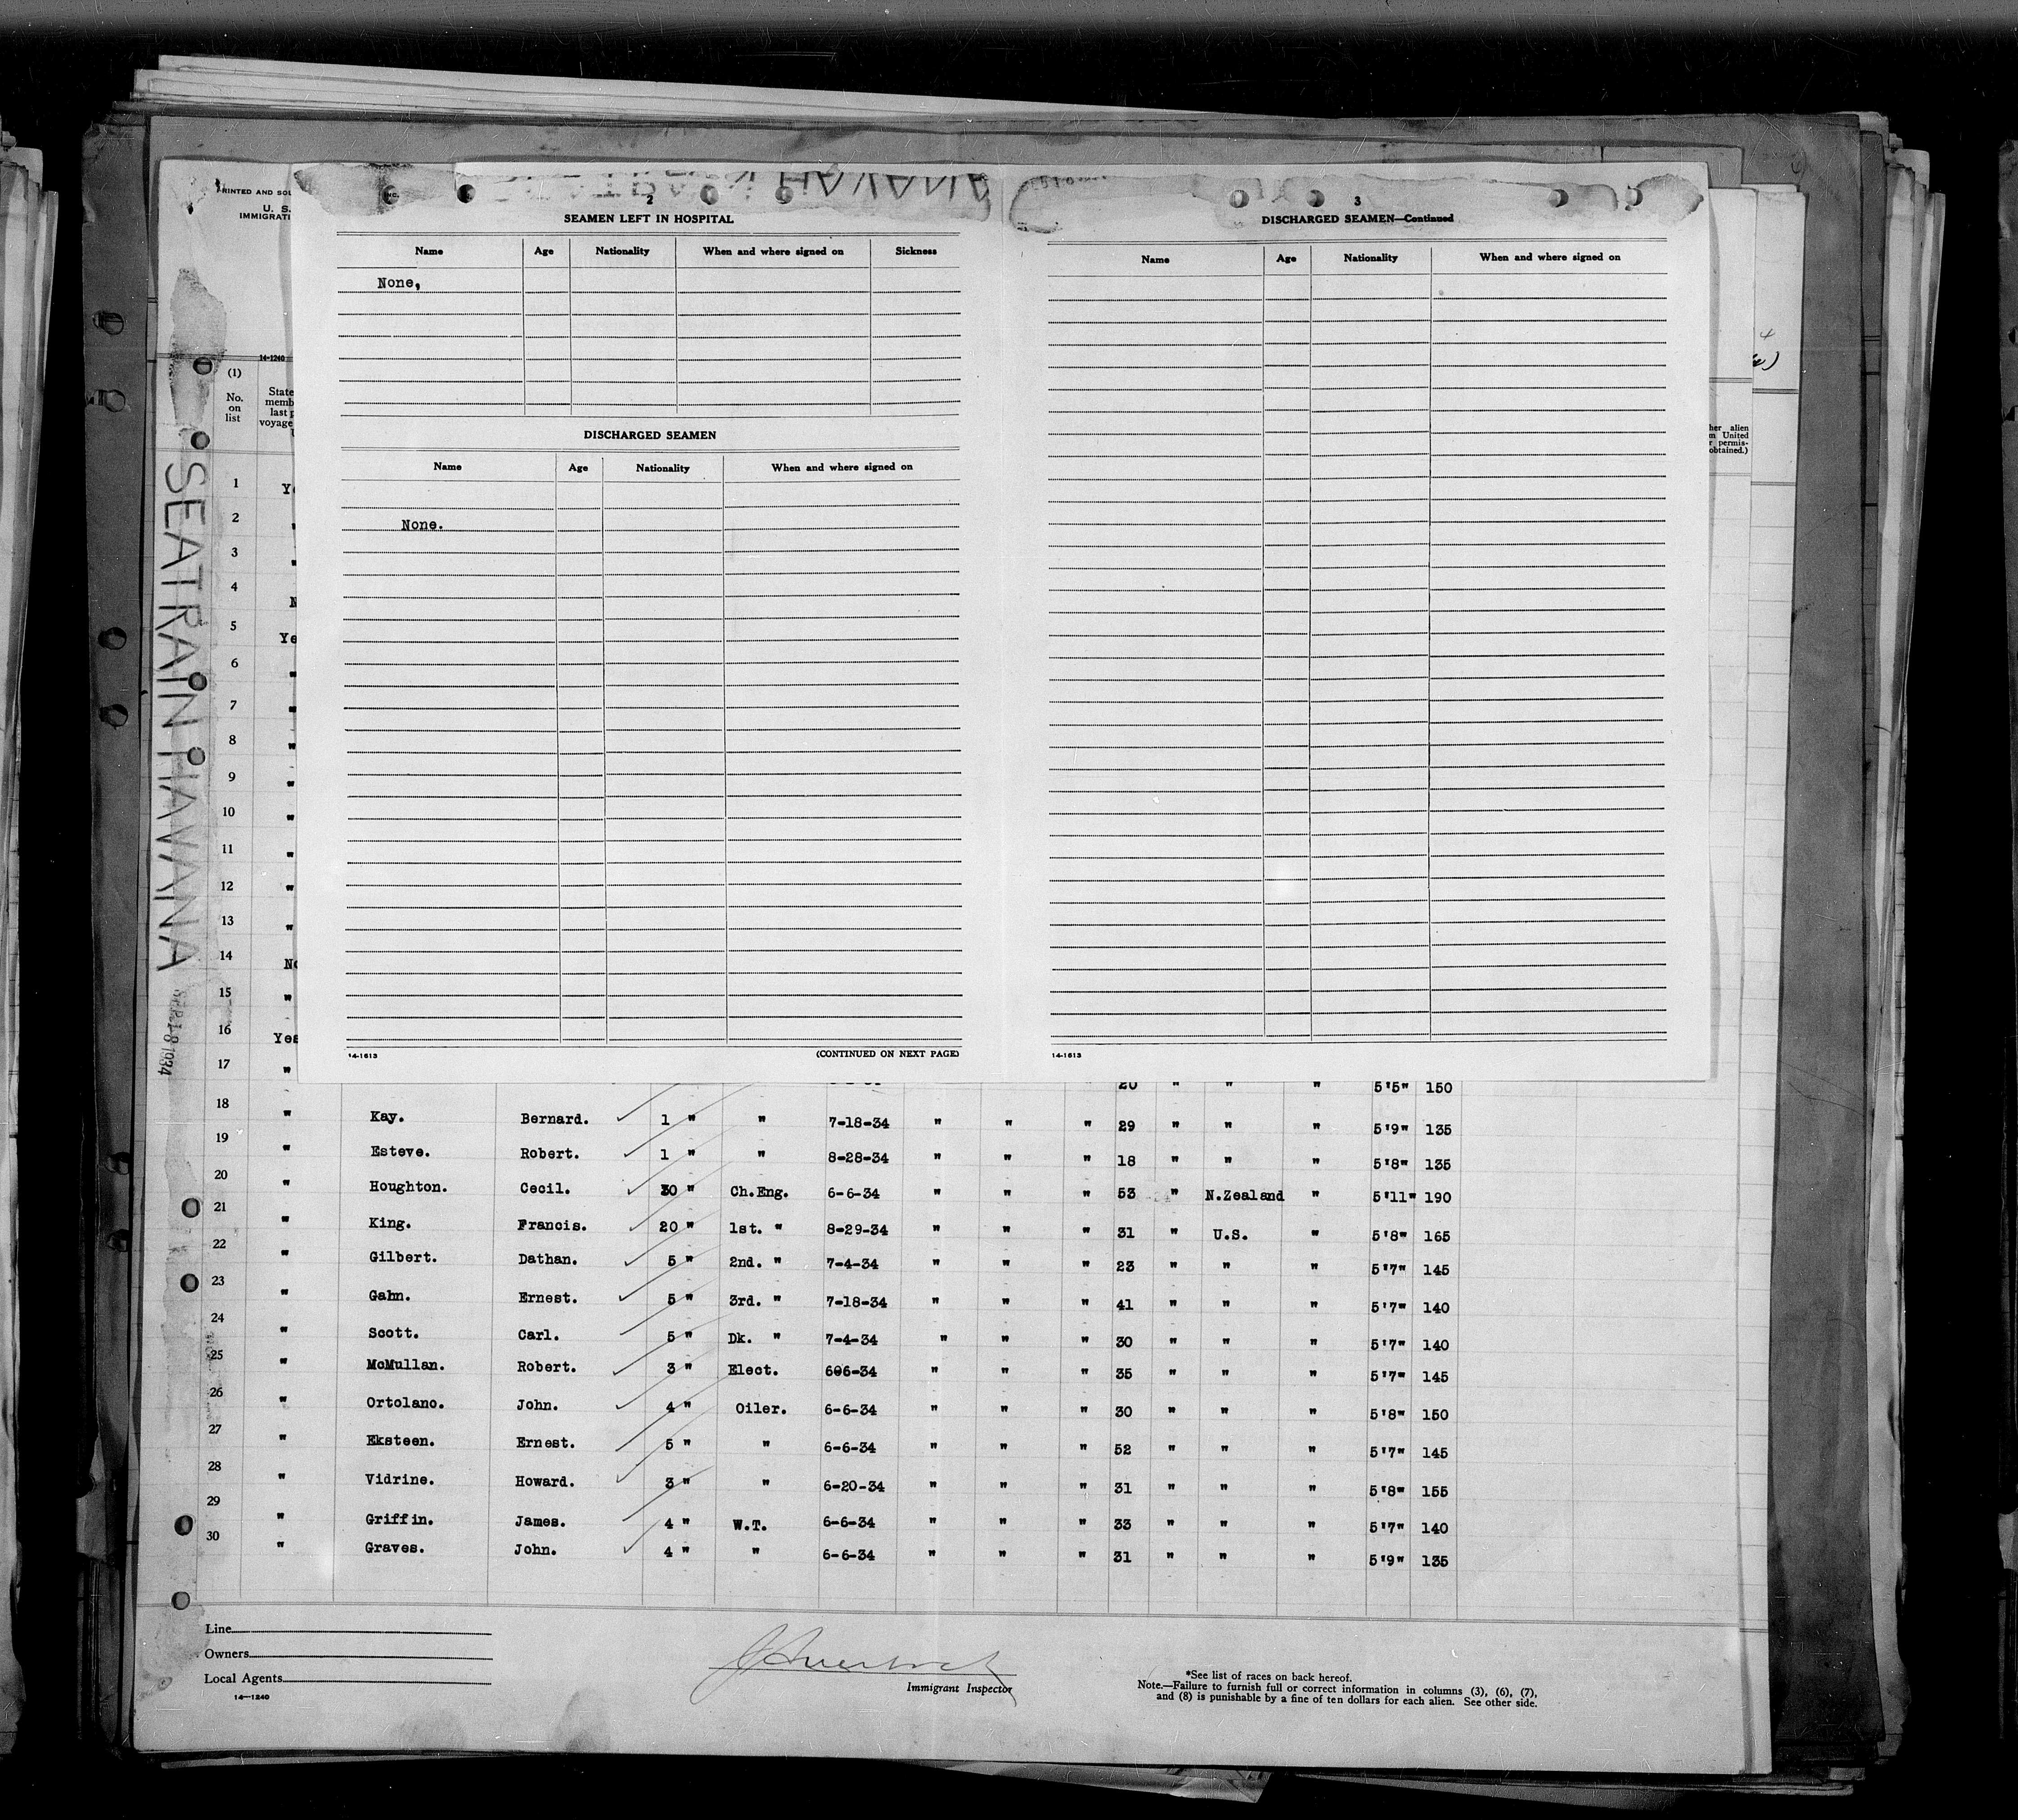 PRINTED AND SOL
U. S.
IMMIGRATI
INC.
HAVANA
2
SEAMEN LEFT IN HOSPITAL
Name Age Nationality When and where signed on Sickness
None,
DISCHARGED SEAMEN
Name Age Nationality When and where signed on
None.
14-1613 (CONTINUED ON NEXT PAGE)
3
DISCHARGED SEAMEN—Continued
Name Age Nationality When and where signed on
14-1613
4
her alien
m United
r permis-
obtained.)
14-1240
(1)
No.
on
list
State
memb
last p
voyage
SEATRAIN HAVANA
SEP 18 1934
1 Ye
2 "
3 "
4 N
5 Ye
6 "
7 "
8 "
9 "
10 "
11 "
12 "
13 "
14 No
15 "
16 Yes
17 " 20 " " " 5'5" 150
18 " Kay. Bernard. 1 " " 7-18-34 " " " 29 " " " 5'9" 135
19 " Esteve. Robert. 1 " " 8-28-34 " " " 18 " " " 5'8" 135
20 " Houghton. Cecil. 30 " Ch.Eng. 6-6-34 " " " 53 " N.Zealand " 5'11" 190
21 " King. Francis. 20 " 1st. " 8-29-34 " " " 31 " U.S. " 5'8" 165
22 " Gilbert. Dathan. 5 " 2nd. " 7-4-34 " " " 23 " " " 5'7" 145
23 " Gahn. Ernest. 5 " 3rd. " 7-18-34 " " " 41 " " " 5'7" 140
24 " Scott. Carl. 5 " Dk. " 7-4-34 " " " 30 " " " 5'7" 140
25 " McMullan. Robert. 3 " Elect. 606-34 " " " 35 " " " 5'7" 145
26 " Ortolano. John. 4 " Oiler. 6-6-34 " " " 30 " " " 5'8" 150
27 " Eksteen. Ernest. 5 " " 6-6-34 " " " 52 " " " 5'7" 145
28 " Vidrine. Howard. 3 " " 6-20-34 " " " 31 " " " 5'8" 155
29 " Griffin. James. 4 " W.T. 6-6-34 " " " 33 " " " 5'7" 140
30 " Graves. John. 4 " " 6-6-34 " " " 31 " " " 5'9" 135
Line
Owners
Local Agents
14—1240
Immigrant Inspector
*See list of races on back hereof.
Note.—Failure to furnish full or correct information in columns (3), (6), (7),
and (8) is punishable by a fine of ten dollars for each alien. See other side.